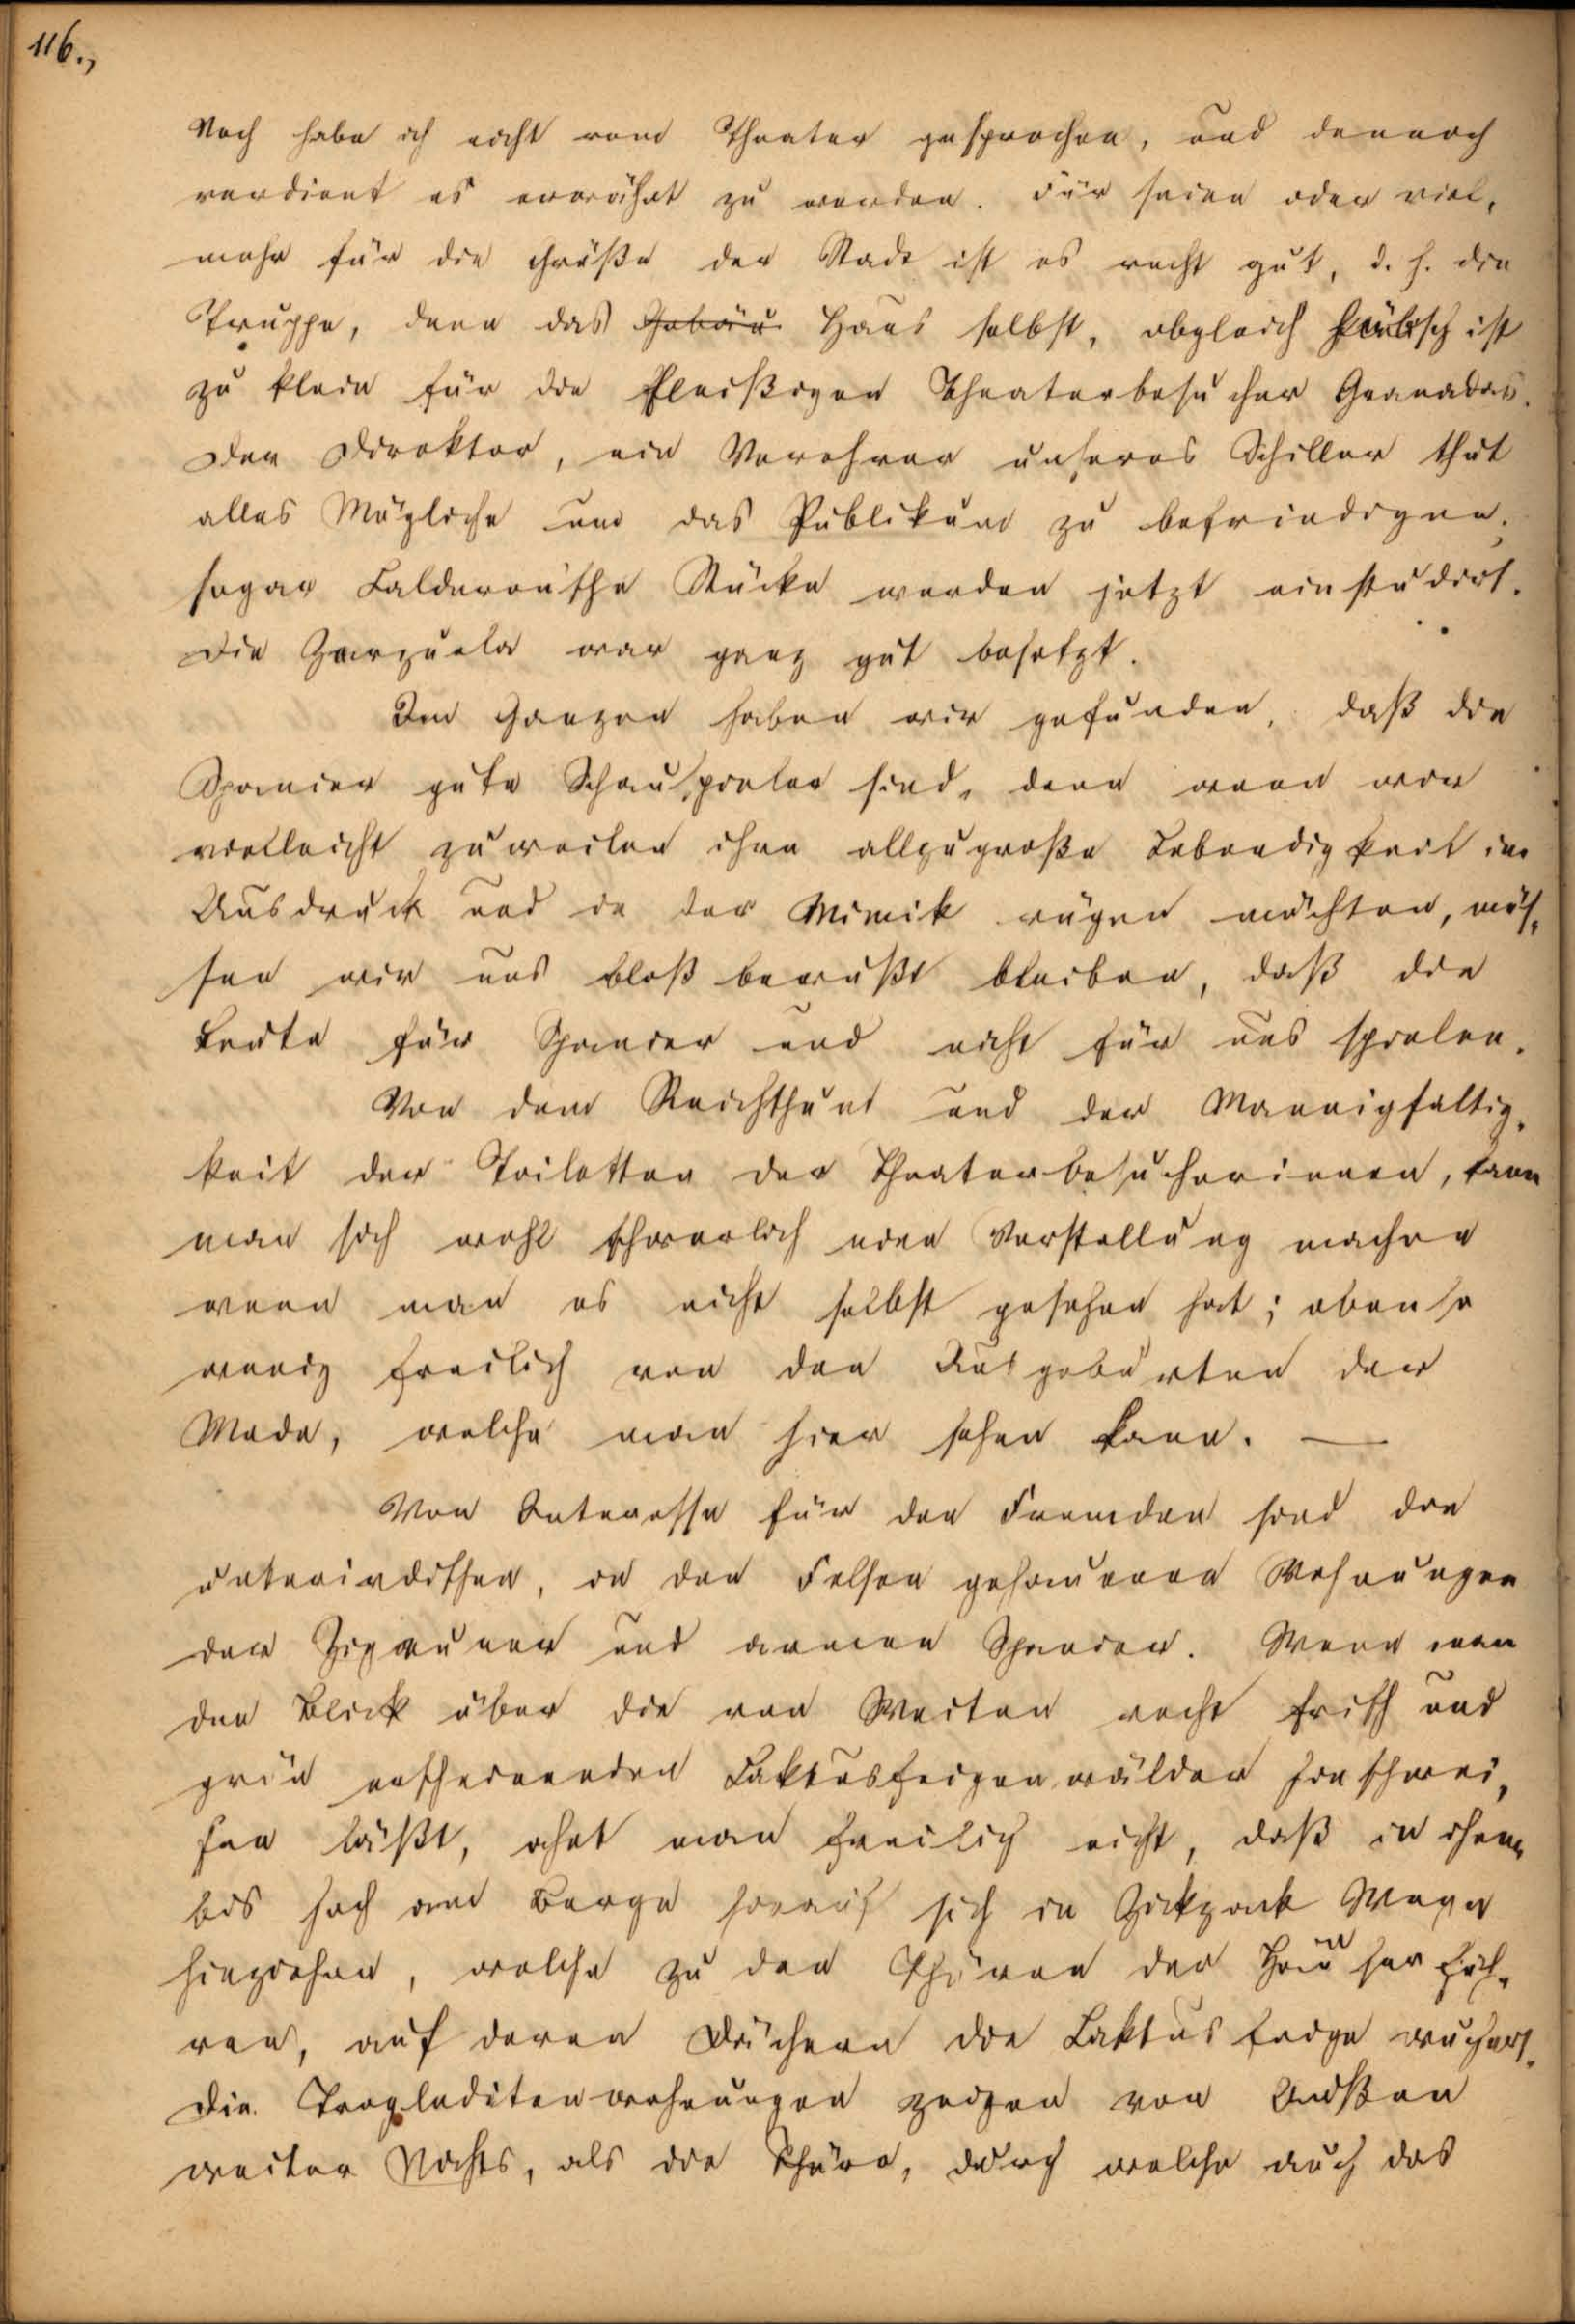 116.,
Noch habe ich nicht vom Theater gesprochen, und dennoch
verdient es erwähnt zu werden. Für seine oder viel,
mehr für die Größe der Stadt ist es recht gut, d. h. die
Truppe, denn das Gebäu Haus selbst, obgleich hübsch ist
zu klein für die fleißigen Theaterbesucher Granadas.
Der Direktor, ein Verehrer unseres Schiller thut
alles Mögliche um das Publikum zu befriedigen,
sogar Calderon'sche Stücke werden jetzt einstudirt.
Die Zarzuela war ganz gut besetzt.
Im Ganzen haben wir gefunden, daß die
Spanier gute Schauspieler sind, denn wenn wir
vielleicht zuweilen ihre allzugroße Lebendigkeit im
Ausdruck und in der Mimik rügen möchten, müs,
sen wir uns bloß bewußt bleiben, daß die
Leute für Spanier und nicht für uns spielen.
Von dem Reichthum und der Mannigfaltig,
keit der Toiletten der Theaterbesucherinnen, kann
man sich wohl schwerlich eine Vorstellung machen
wenn man es nicht selbst gesehen hat; ebenso
wenig freilich von den Ausgeburten der
Mode, welche man hier sehen kann. —
Von Interesse für den Fremden sind die
unterirdischen, in den Felsen gehauenen Wohnungen
der Zigeuner und armen Spanier. Wenn man
den Blick über die von Weiten recht frisch und
grün erscheinenden Caktusfeigenwälder hinschwei,
fen läßt, ahnt man freilich nicht, daß in ihnen
bis hoch am Berge hinauf sich in Zickzack Wege
hinziehen, welche zu den Thüren der Häuser füh,
ren, auf deren Dächern die Caktusfeige wuchert.
Die Trogloditenwohnungen zeigen von Außen
weiter Nichts, als die Thüre, durch welche auch das